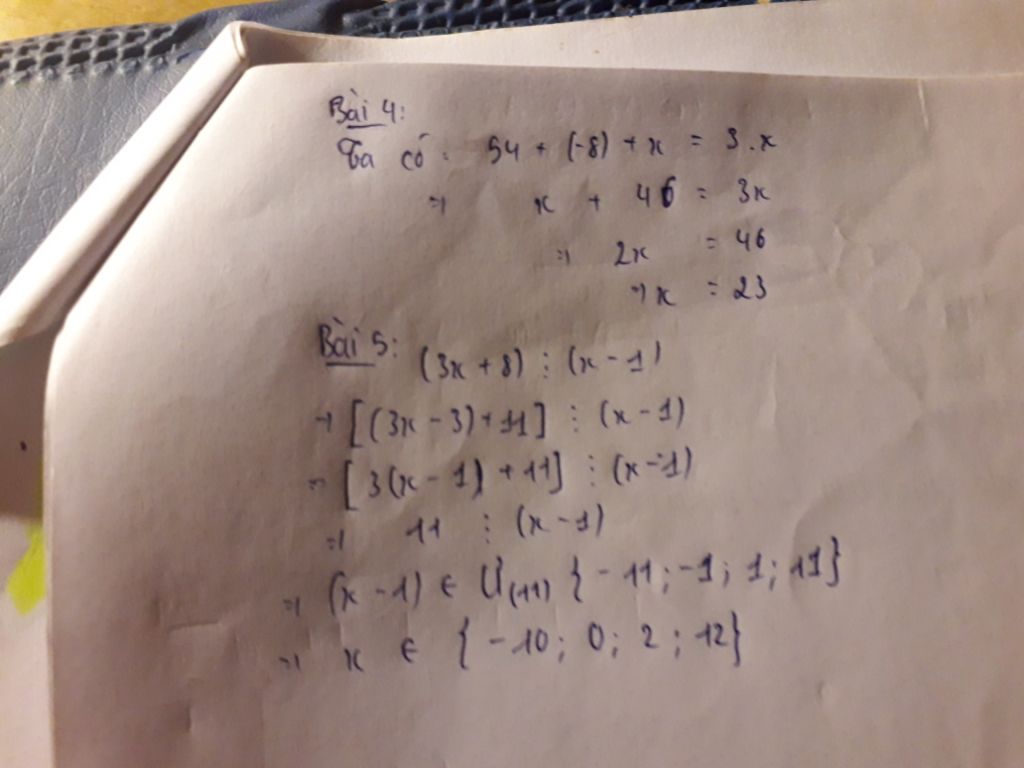 Bài 4:
Ta có: 54 + (-8) + x = 3.x
=> x + 46 = 3x
=> 2x = 46
=> x = 23
Bài 5: (3x + 8) ⋮ (x - 1)
=> [(3x - 3) + 11] ⋮ (x - 1)
=> [3(x - 1) + 11] ⋮ (x - 1)
=> 11 ⋮ (x - 1)
=> (x - 1) ∈ Ư(11) {-11; -1; 1; 11}
=> x ∈ {-10; 0; 2; 12}